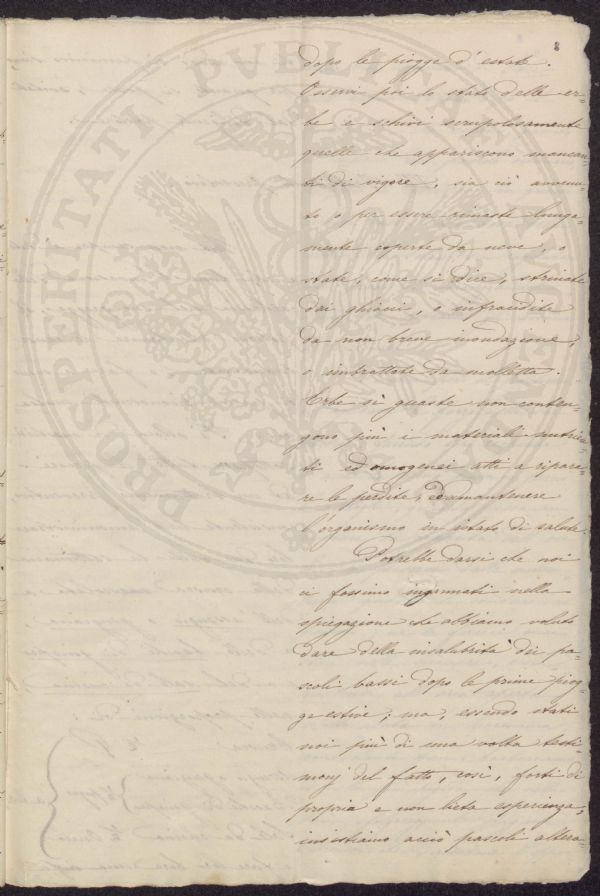 8
dopo le piogge d'estate.
Osservi poi lo stato delle er-
be e schivi scrupolosamente
quelle che appariscono mancan
ti di vigore, sia ciò avvenu-
to o per essere rimaste lunga-
mente coperte da neve, o
state, come si dice, strinate
dai ghiacci, o infracidite
da non breve inondazione,
o imbrattate da melletta.
Erbe sì guaste non conten-
gono più i materiali nutrien
ti ed omogenei atti a ripara-
re le perdite, ed a mantenere
l'organismo in istato di salute.
Potrebbe darsi che noi
ci fossimo ingannati nella
spiegazione che abbiamo voluto
dare della insalubrità dei pa-
scoli bassi dopo le prime piog-
ge estive; ma, essendo stati
noi più di una volta testi-
monj del fatto, così, forti di
propria e non lieta esperienza,
insistiamo acciò pascoli altera-
PROSPERITATI PVBLICAE